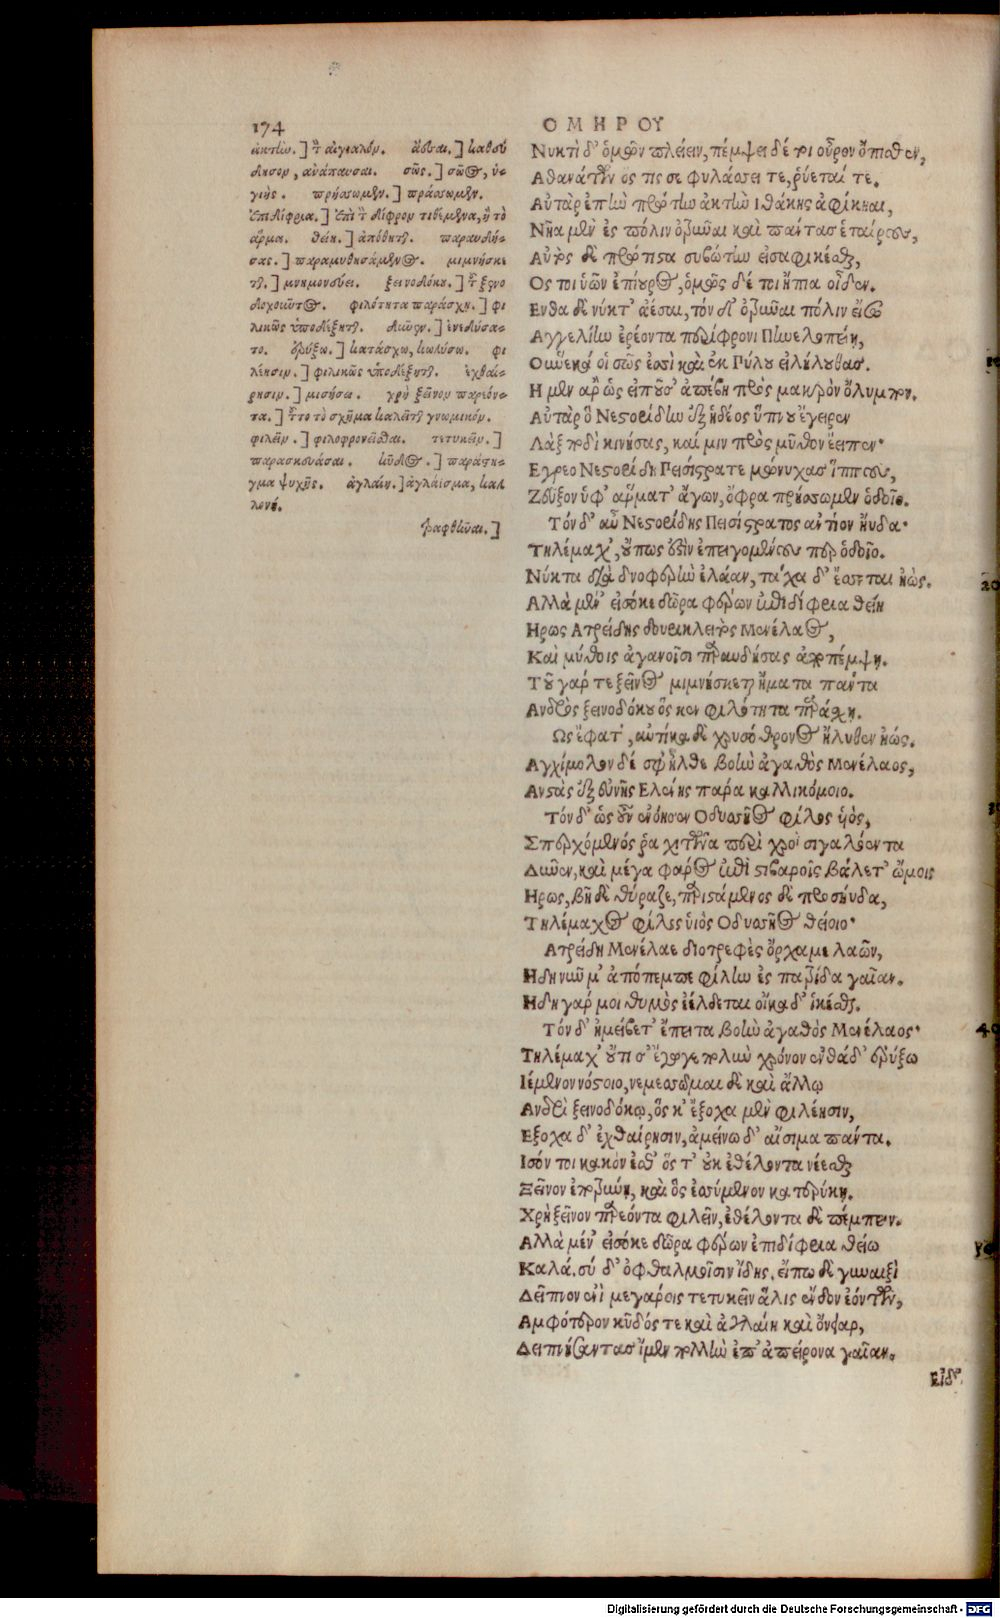 174
ΟΜΗΡΟΥ
ἀκτὴν.] τ̀ αἰγιαλόν. ἀέσαι.] καθευ
δῆσον, ἀνάπαυσαι. σῶς.] σῶος, ὑ-
γιής. πρήσσωμεν.] πράσσωμεν.
ἐπιδίφρια.] ἐπὶ τ̀ δίφρον τιθέμενα, ἢ τὸ
ἅρμα. θείη.] ἀπόθηται. παραυδή-
σας.] παραμυθησάμενος. μιμνήσκε
ται.] μνημονεύει. ξεινοδόκου.] τ̀ ξενο
δοχοῦντος. φιλότητα παράσχῃ.] φι
λικῶς ὑποδέξηται. δῦνεν.] ἐνεδύσα-
το. ἐρύξω.] κατάσχω, κωλύσω. φι
λέησιν.] φιλικῶς ὑποδέξηται. ἐχθαί-
ρησιν.] μισήσω. χρὴ ξεῖνον παρεόν-
τα.] τοῦτο τὸ σχῆμα καλεῖται γνωμικόν.
φιλεῖν.] φιλοφρονεῖσθαι. τετυκεῖν.]
παρασκευάσαι. κῦδος.] παράστη-
γμα ψυχῆς. ἀγλαίη.] ἀγλάισμα, καλ
λονή.
γραφθῆναι.]
Νυκτὶ δ' ὁμῶς πλείειν, πέμψει δέ τοι οὖρον ὄπισθεν,
Αθανάτων ὅς τις σε φυλάσσει τε, ῥύεταί τε.
Αὐτὰρ ἐπὴν πρώτην ἀκτὴν ἰθάκης ἀφίκηαι,
Νῆα μὲν ἐς πόλιν ὀτρῦναι καὶ πάντας ἑταίρους,
Αὐτὸς δὲ πρώτιστα συβώτην εἰσαφικέσθαι,
Ος τοι ὑῶν ἐπίουρος, ὁμῶς δέ τοι ἤπια οἶδεν.
Ενθα δὲ νύκτ' ἀέσαι, τὸν δ' ὀτρῦναι πόλιν εἴσω
Αγγελίην ἐρέοντα περίφρονι Πηνελοπείῃ,
Ουὕνεκά οἱ σῶς ἐσσὶ καὶ ἐκ Πύλου εἰλήλουθας.
Η μὲν ἄρ' ὣς εἰποῦσ' ἀπέβη πρὸς μακρὸν ὄλυμπον.
Αὐτὰρ ὁ Νεστορίδην ἐξ ἡδέος ὕπνου ἔγειρεν
Λὰξ ποδὶ κινήσας, καί μιν πρὸς μῦθον ἔειπεν·
Εγρεο Νεστορίδη Πεισίστρατε μώνυχας ἵππους,
Ζεῦξον ὑφ' ἅρματ' ἄγων, ὄφρα πρήσσωμεν ὁδοῖο.
Τόνδ' αὖ Νεστορίδης Πεισίστρατος αντίον ἤυδα·
Τηλέμαχ', οὔπως ἔστιν ἐπειγομένους περ ὁδοῖο.
Νύκτα διὰ δνοφερὴν ἐλάαν, τάχα δ' ἔσσεται ἠώς.
Αλλὰ μέν' εἰσόκε δῶρα φέρων ἐπιδίφρια θείη
Ηρως Ατρείδης δουρικλειτὸς Μενέλαος,
Καὶ μύθοις ἀγανοῖσι παραυδήσας ἀποπέμψῃ.
Τοῦ γάρ τε ξεῖνος μιμνήσκεται ἤματα πάντα
Ανδρὸς ξεινοδόκου ὅς κεν φιλότητα παράσχῃ.
Ως ἔφατ', αὐτίκα δὲ χρυσόθρονος ἤλυθεν ἠώς.
Αγχίμολον δέ σφ' ἦλθε βοὴν ἀγαθὸς Μενέλαος,
Ανστὰς ἐξ εὐνῆς Ελένης πάρα καλλικόμοιο.
Τόνδ' ὡς οὖν ἐνόησεν Οδυσσῆος φίλος υἱὸς,
Σπερχόμενός ῥα χιτῶνα περὶ χροῒ σιγαλόεντα
Δῦνεν, καὶ μέγα φᾶρος ἐπὶ στιβαροῖς βάλετ' ὤμοις
Ηρως, βῆ δὲ θύραζε, παριστάμενος δὲ προσηύδα,
Τηλέμαχος φίλος υἱὸς Οδυσσῆος θείοιο·
Ατρείδη Μενέλαε διοτρεφὲς ὄρχαμε λαῶν,
Ηδη νῦν μ' ἀπόπεμπε φίλην ἐς πατρίδα γαῖαν.
Ηδη γάρ μοι θυμὸς ἐέλδεται οἴκαδ' ἱκέσθαι.
Τόνδ' ἠμείβετ' ἔπειτα βοὴν ἀγαθὸς Μενέλαος·
Τηλέμαχ' οὔτι σ' ἔγωγε πολὺν χρόνον ἐνθάδ' ἐρύξω
Ιέμενον νόστοιο, νεμεσσῶμαι δὲ καὶ ἄλλῳ
Ανδρὶ ξεινοδόκῳ, ὅς κ' ἔξοχα μὲν φιλέησιν,
Εξοχα δ' ἐχθαίρησιν, ἀμείνω δ' αἴσιμα πάντα.
Ισόν τοι κακόν ἐσθ' ὅς τ' οὐκ ἐθέλοντα νέεσθαι
Ξεῖνον ἐποτρύνῃ, καὶ ὃς ἐσσύμενον κατερύκῃ.
Χρὴ ξεῖνον παρεόντα φιλεῖν, ἐθέλοντα δὲ πέμπειν.
Αλλὰ μέν' εἰσόκε δῶρα φέρων ἐπιδίφρια θείω
Καλά, σύ δ' ὀφθαλμοῖσιν ἴδῃς, εἴπω δὲ γυναιξὶ
Δεῖπνον ἐνὶ μεγάροις τετυκεῖν ἅλις ἔνδον ἐόντων,
Αμφότερον κῦδός τε καὶ ἀγλαίη καὶ ὄνειαρ,
Δειπνήσαντας ἴμεν πολλὴν ἐπ' ἀπείρονα γαῖαν.
Εἰ δ'
20
40
Digitalisierung gefördert durch die Deutsche Forschungsgemeinschaft - DFG